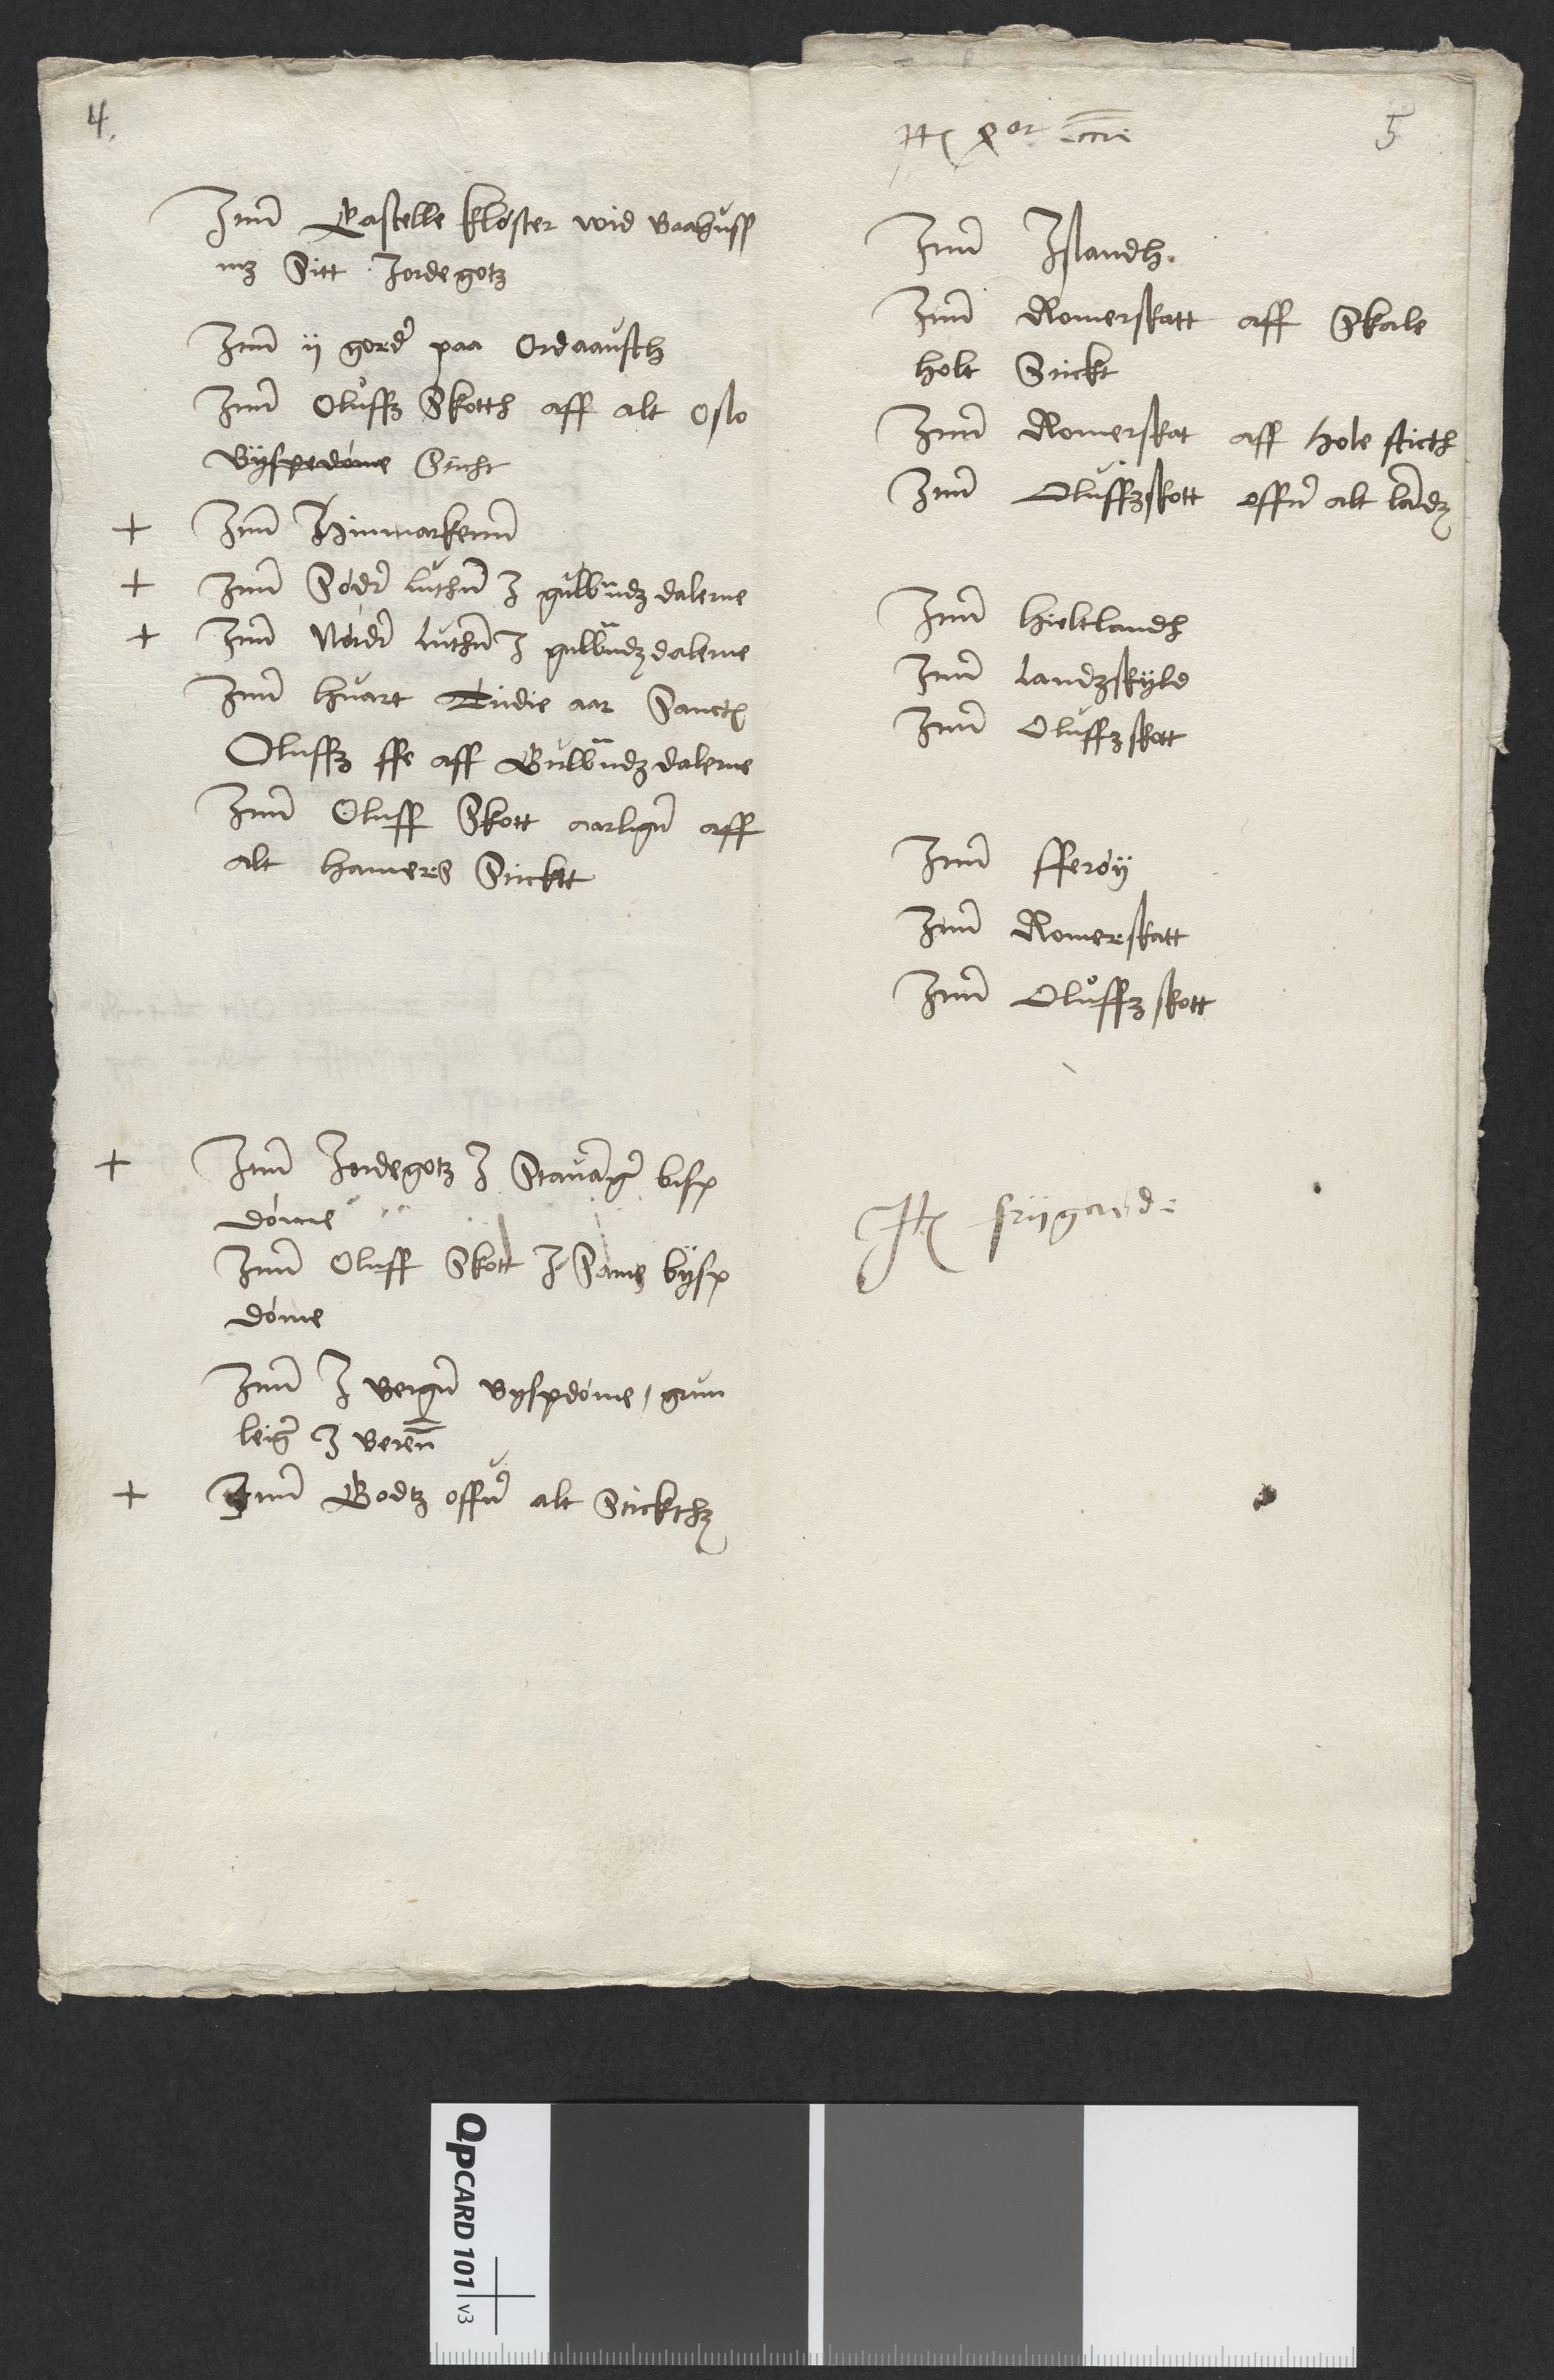 4.
Item Castelle kloster wid Baahuss
mz Sitt Jordegotz
Item ij gord paa Ordaausth
Item Oluffz Skotth aff alt Oslo
Byspedöme Sticht
+ Item Hinmarkenn
+ Item Södr luthn J gulbrndz dalerne
+ Item Nördr luthn J gulbrndz dalerne
Item huart Tridie aar Sanct
Oluffz ffe aff Gulbrndz dalerne
Item Oluff Skott aarligen aff
alt hamers Stricktt
+ Item Jordegotz J Stauangr bisp
döme
Item Oluff Skott J Same bÿsp
döme
Item J Bergn Byspdöme, grun
leig J Bern
+ Item Godtz offuer alt Stickthz
5
Item Islandh.
Item Romerskatt aff Skale
holt Stickt
Item Romerskat aff Hole sticth
Item Oluffzskott offuer alt landz
Item Hieltlandh
Item Landzskÿld
Item Oluffzskott
Item fferöÿ
Item Romerskatt
Item Oluffz skott
It friigaard
QPCARD 101 v3